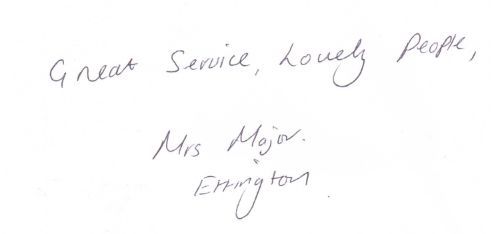 Great Service, Lovely People,
Mrs Major.
Errington.